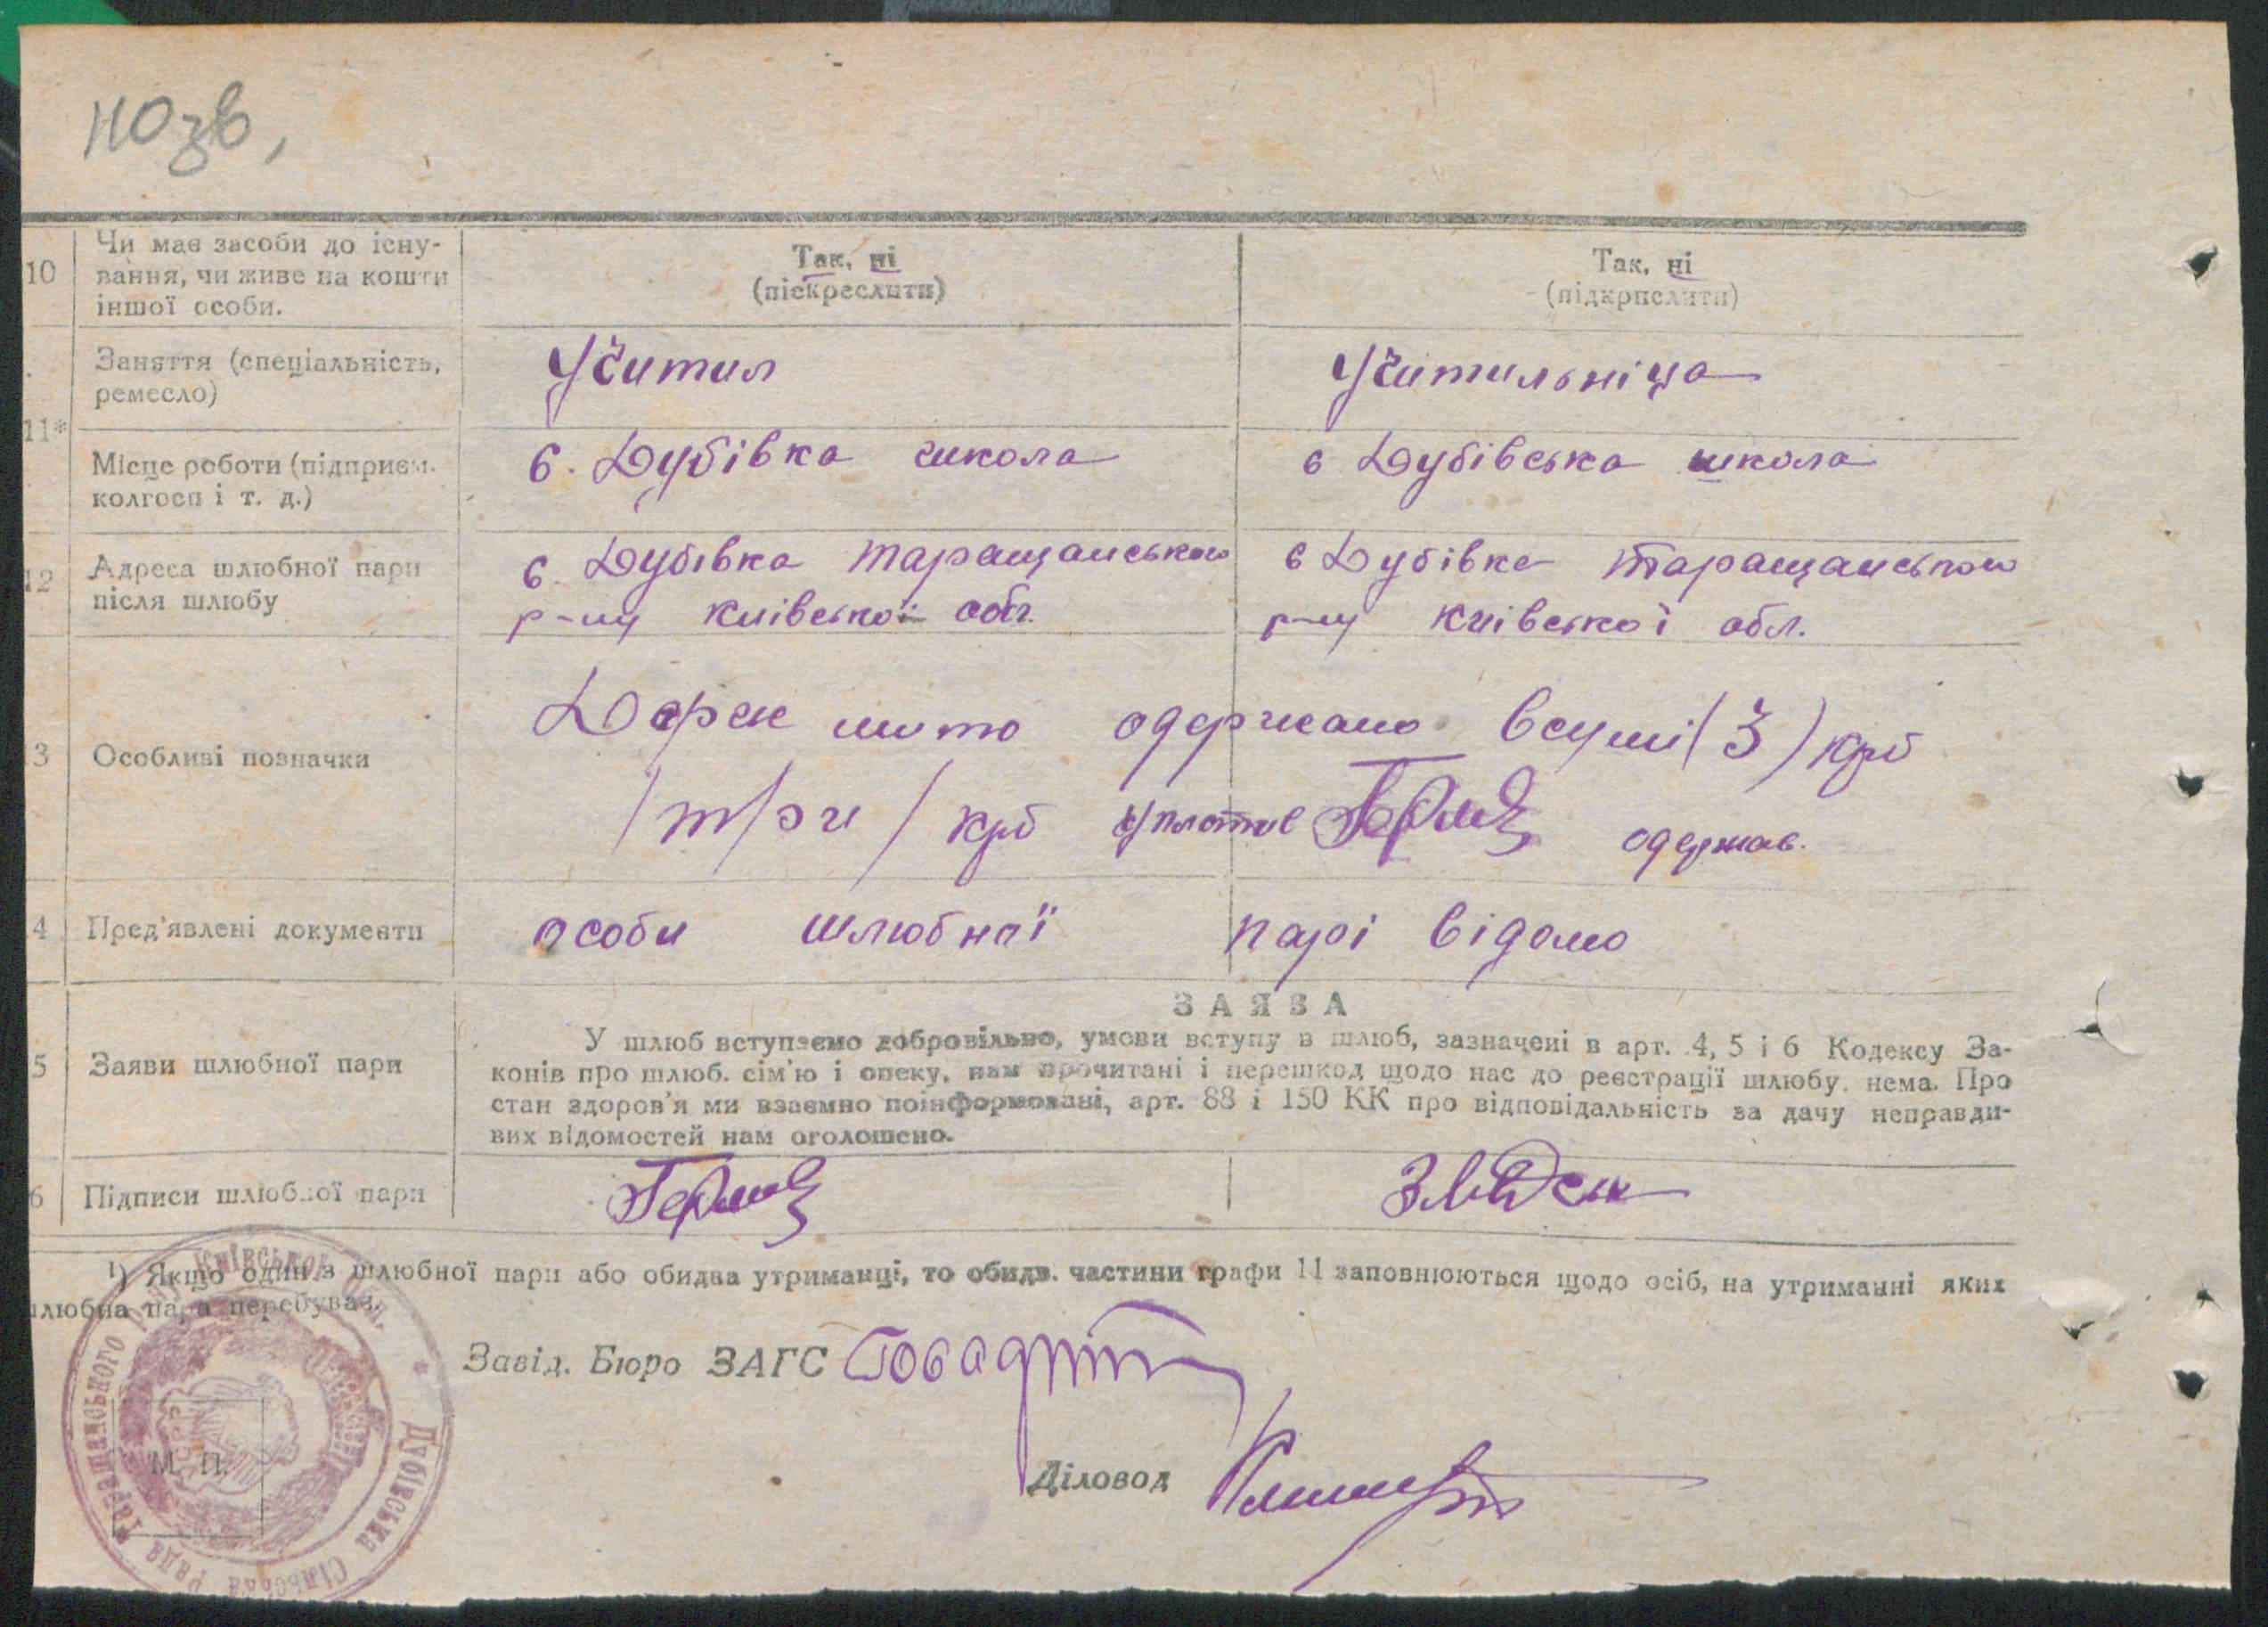 10 Чи має засоби до існу-
вання, чи живе на кошти
іншої особи.
Так, ні
(піекреслити)
Так, ні
(підкрпслити)
11*
Заняття (спеціальність,
ремесло)
Учитил
Учитильніца
Місце роботи (підприєм.
колгосп і т. д.)
с. Дубівка школа
с Дубівська школа
12 Адреса шлюбної пари
після шлюбу
с. Дубівка Таращанського
р-ну Київської обл.
с Дубівка Таращанського
р-ну Київської обл.
3 Особливі позначки
Держ мито одержано в сумі (3) крб
/три/ крб уплатив одержав.
4 Пред'явлені документи
особи шлюбної парі відомо
5 Заяви шлюбної пари
ЗАЯВА
У шлюб вступаємо добровільно, умови вступу в шлюб, зазначені в арт. 4, 5 і 6 Кодексу За-
конів про шлюб. сім'ю і опеку, нам прочитані і перешкод щодо нас до реєстрації шлюбу. нема. Про
стан здоров'я ми взаємно поінформовані, арт. 88 і 150 КК про відповідальність за дачу неправди-
вих відомостей нам оголошено.
6 Підписи шлюбної пари
1) Якщо один з шлюбної пари або обидва утриманці, то обидв. частини графи 11 заповнюються щодо осіб, на утриманні яких
шлюбна пара перебуває.
Завід. Бюро ЗАГС
Діловод
М. П.
Дубівська Сільська Рада Таращанського р. Київської обл.